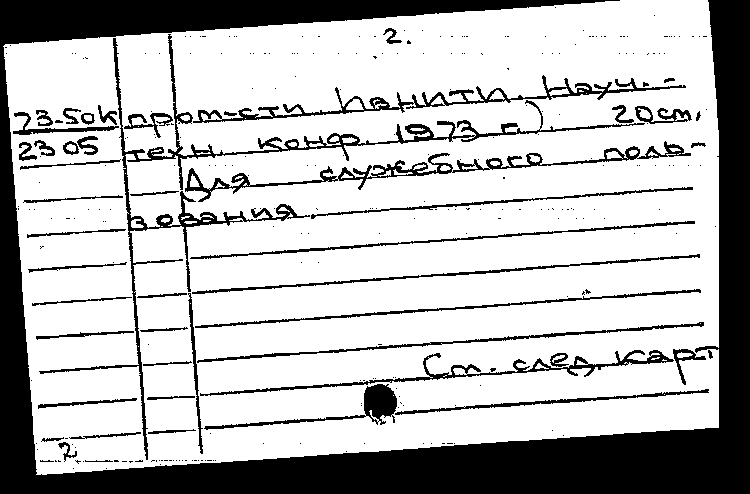 2.
73-50к пром-сти. ЦНИИТИ. Науч.-
2305 техн. конф. 1973 г.). 20 см.
Для служебного поль-
зования.
См. след. карт
2